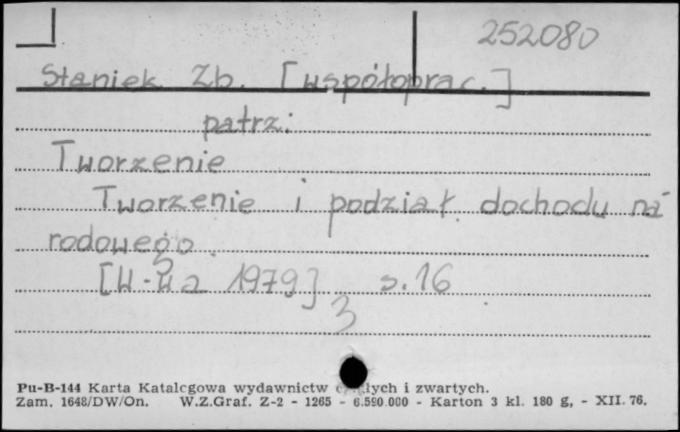 252080
Staniek Zb. [współoprac.]
patrz:
Tworzenie
Tworzenie i podział dochodu na-
rodowego.
[W-wa 1979] s. 16
3
Pu-B-144 Karta Katalogowa wydawnictw ciągłych i zwartych.
Zam. 1648/DW/On. W.Z.Graf. Z-2 - 1265 - 6.590.000 - Karton 3 kl. 180 g, - XII. 76.